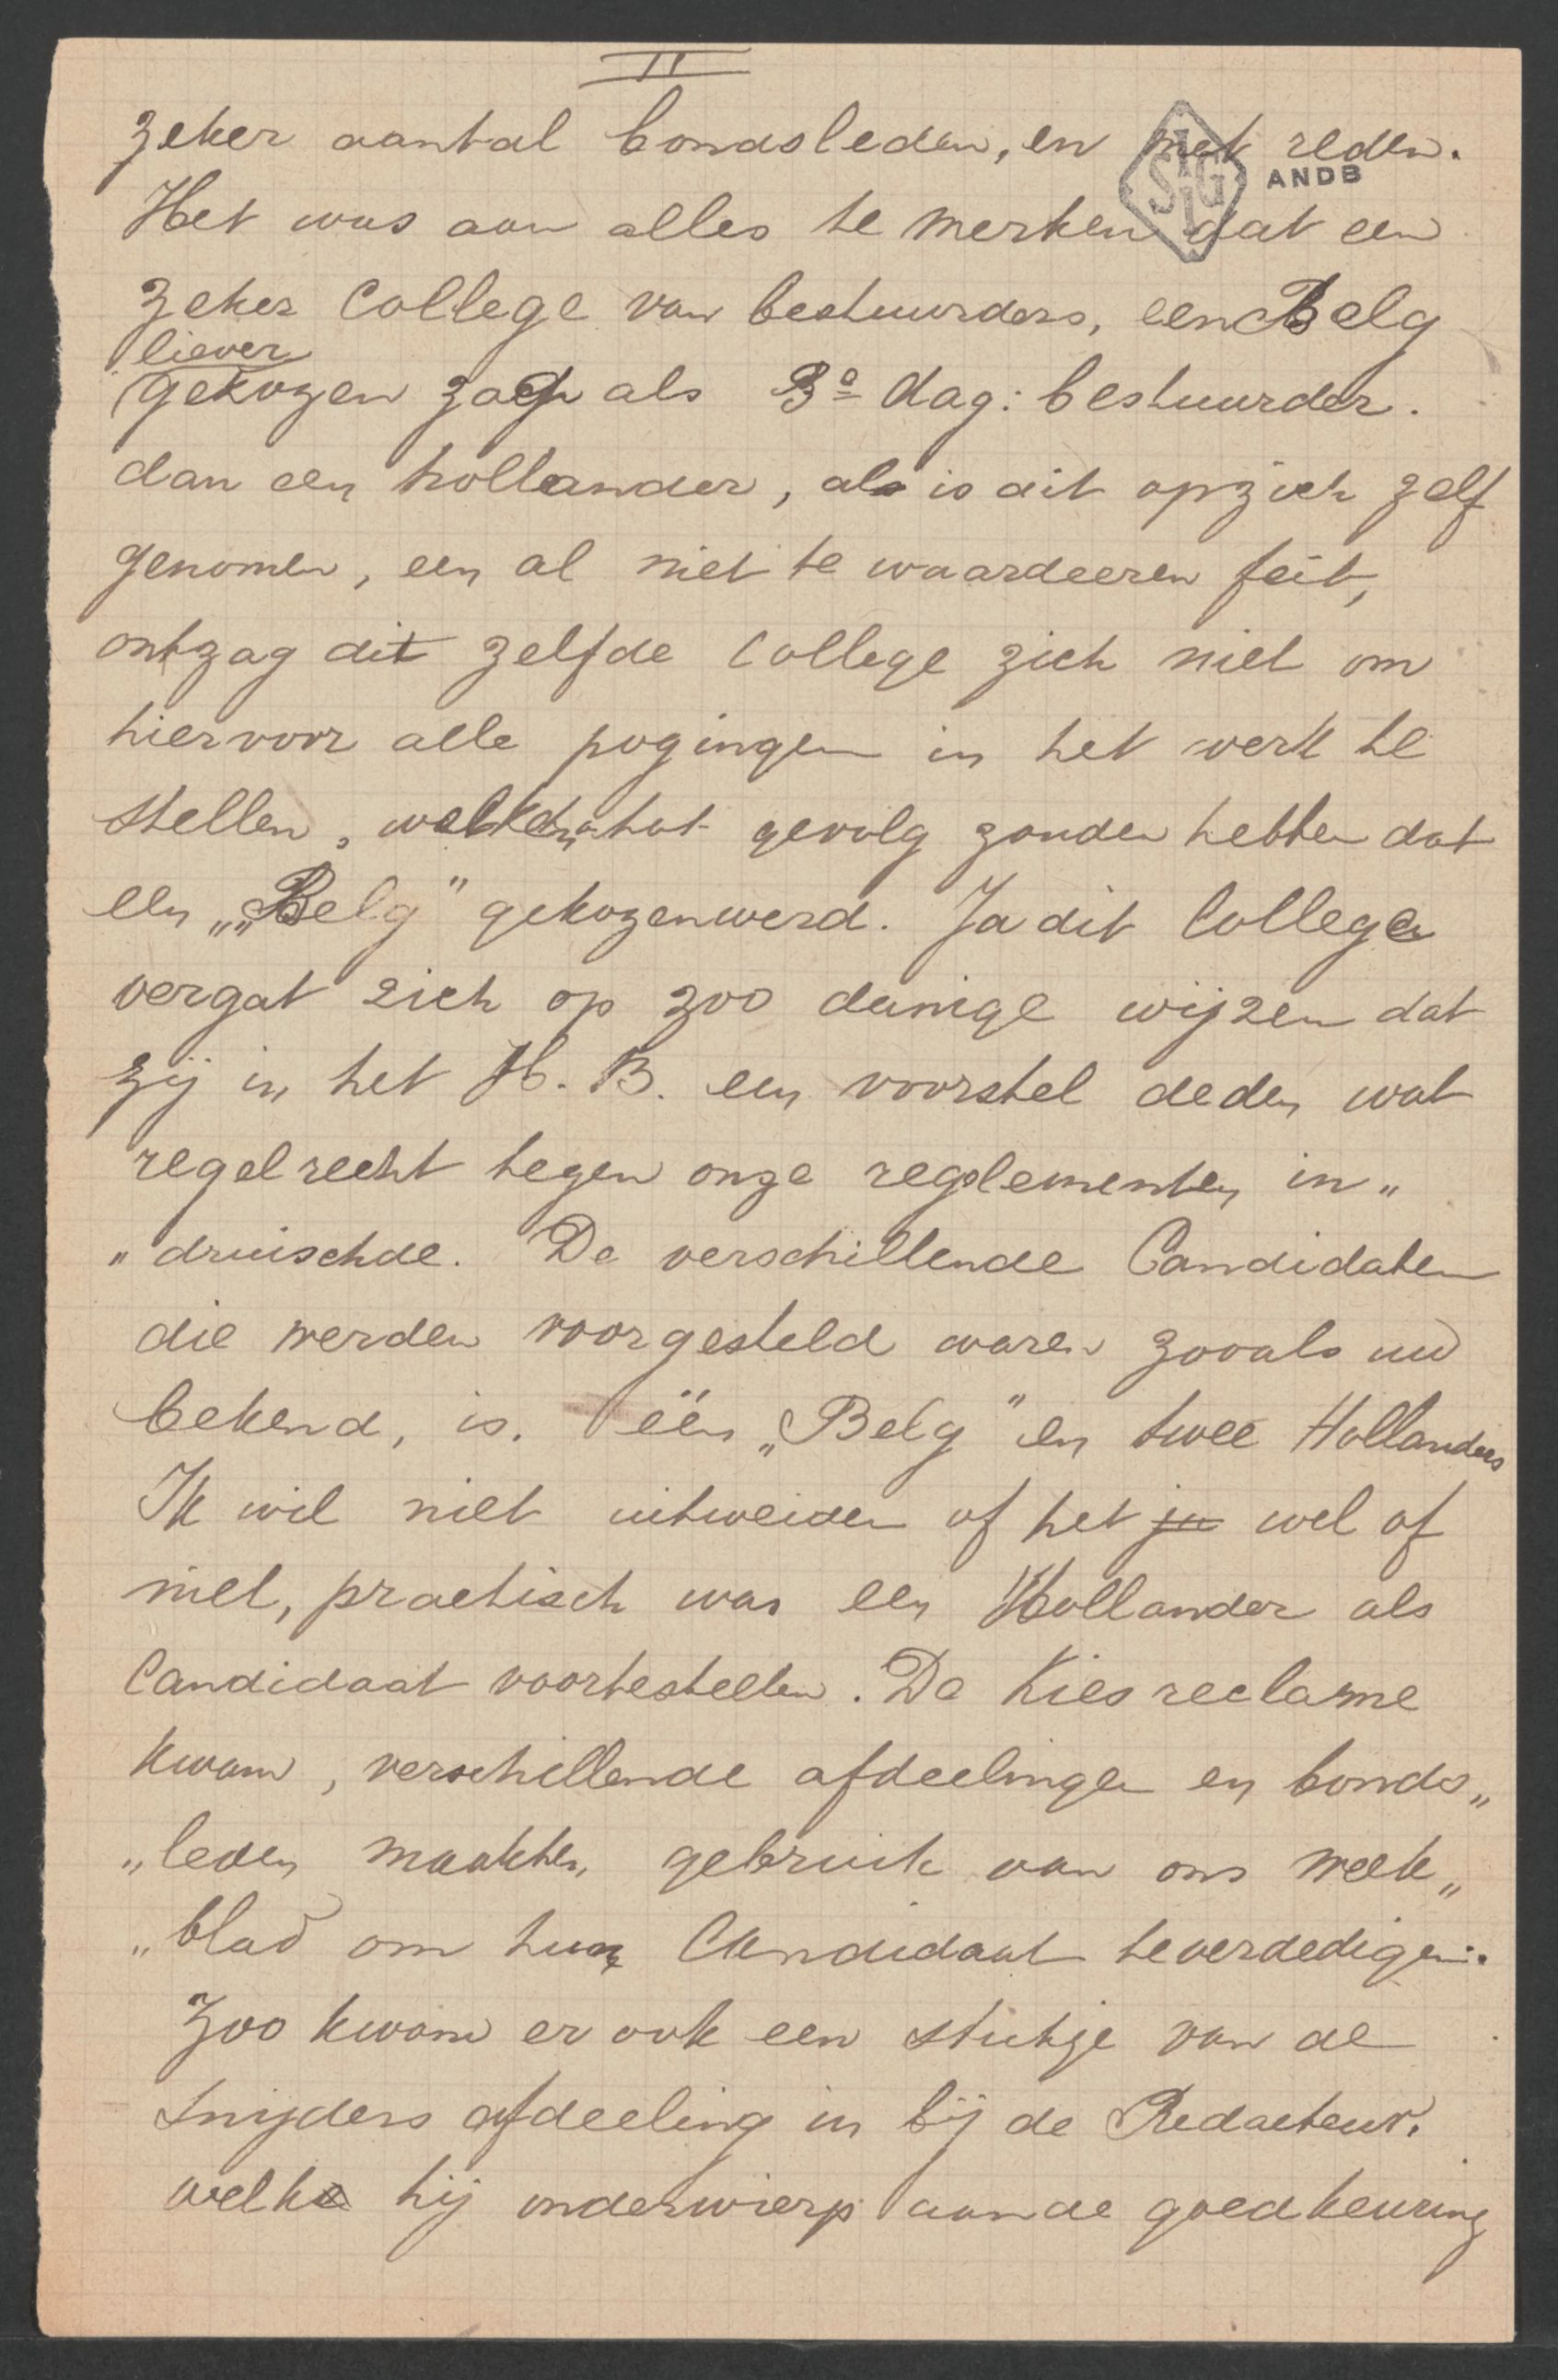 II
zeker aantal bondsleden, en met reden.
IISG ANDB
Het was aan alles te merken dat een
zeker College van bestuurders, een Belg
liever
gekozen zag als 3e dag: bestuurder.
dan een hollander, als is dit opzich zelf
genomen, een al niet te waardeeren feit,
ontzag dit zelfde College zich niet om
hiervoor alle pogingen in het werk te
stellen, welke tot gevolg zouden hebben dat
een „Belg" gekozen werd. Ja dit College
vergat zich op zoo danige wijzen dat
zij in het H. B. een voorstel deden wat
regelrecht tegen onze reglementen in„
„druischde. De verschillende Candidaten
die werden voorgesteld waren zooals nu
bekend, is. één „Belg" en twee Hollanders
Ik wil niet uitweiden of het ju wel of
niet, practisch was een Hollander als
Candidaat voortestellen. De Kiesreclame
kwam, verschillende afdeelingen en bonds„
„leden maakten gebruik van ons week„
„blad om hun Candidaat te verdedigen.
Zoo kwam er ook een stukje van de
Snijders afdeeling in bij de Redacteur.
welke hij onderwierp aan de goedkeuring